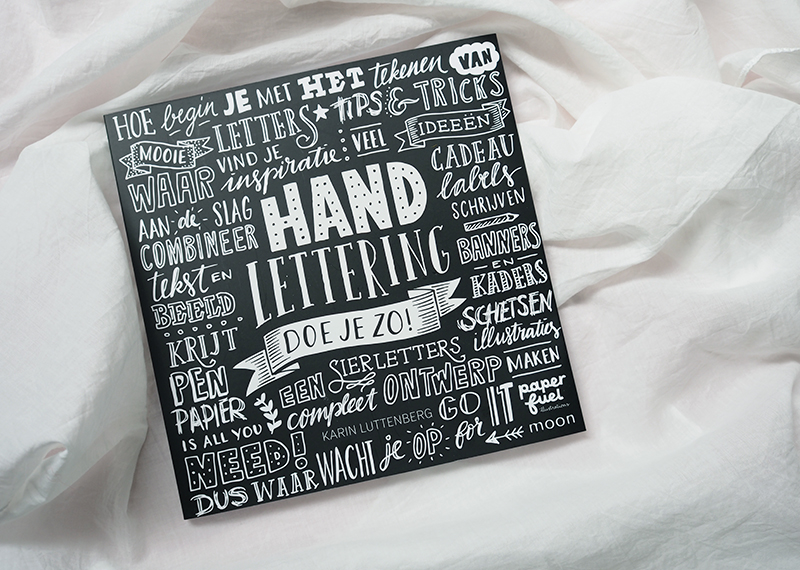 HOE begin JE MET HET tekenen VAN
MOOIE LETTERS ★ TIPS & TRICKS
WAAR VIND JE inspiratie: VEEL IDEEËN
AAN de SLAG
COMBINEER
tekst EN
BEELD
KRIJT
PEN
PAPIER
IS ALL YOU
NEED!
HAND
LETTERING
DOE JE ZO!
CADEAU
labels
SCHRIJVEN
BANNERS
EN
KADERS
SCHETSEN
illustraties
MAKEN
EEN SIERLETTERS
compleet ONTWERP
KARIN LUTTENBERG
DUS WAAR WACHT je OP GO for IT
paper
fuel
illustrations
moon